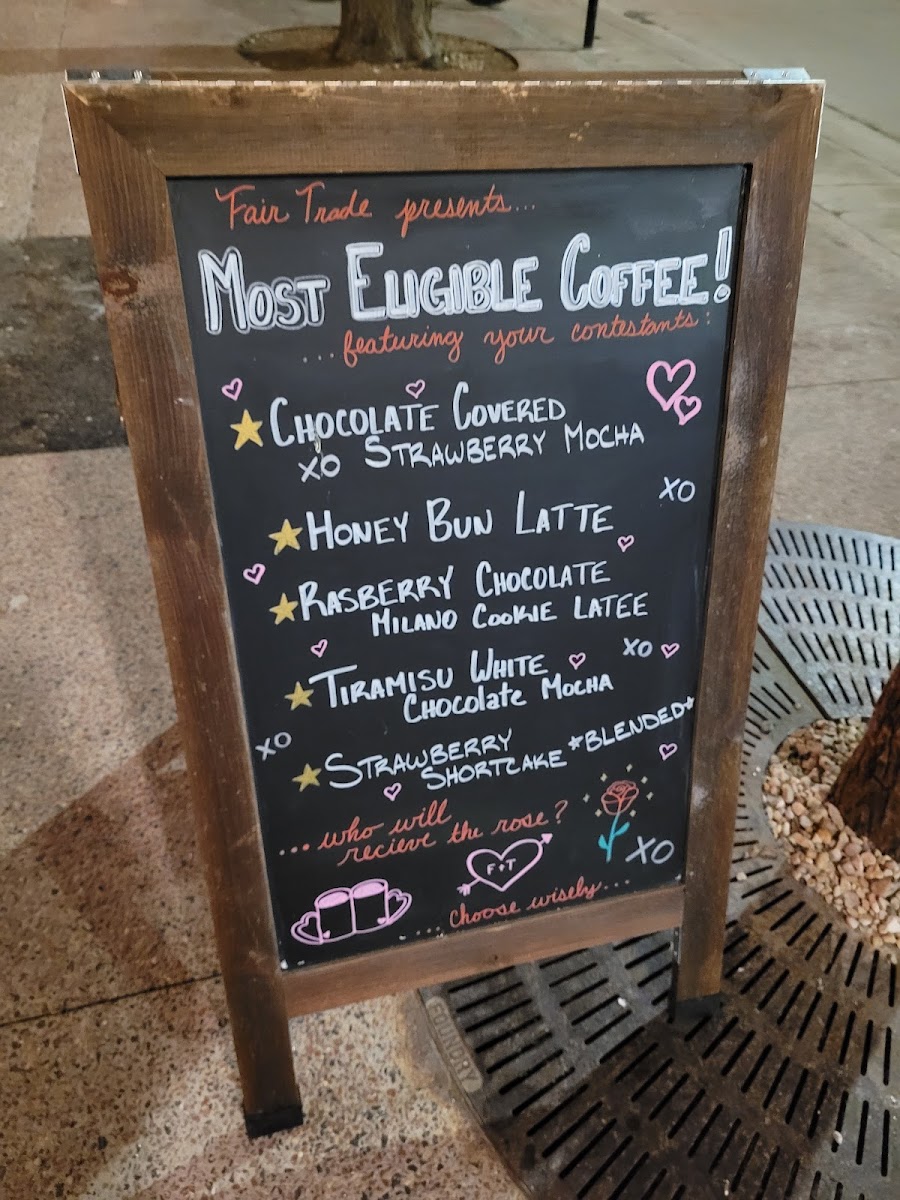 Fair Trade presents...
MOST ELIGIBLE COFFEE!
...featuring your contestants:
CHOCOLATE COVERED
XO STRAWBERRY MOCHA
XO
HONEY BUN LATTE
RASBERRY CHOCOLATE
MILANO COOKIE LATEE
XO
TIRAMISU WHITE
CHOCOLATE MOCHA
XO
STRAWBERRY
SHORTCAKE *BLENDED*
...who will
recieve the rose?
XO
F+T
...choose wisely...